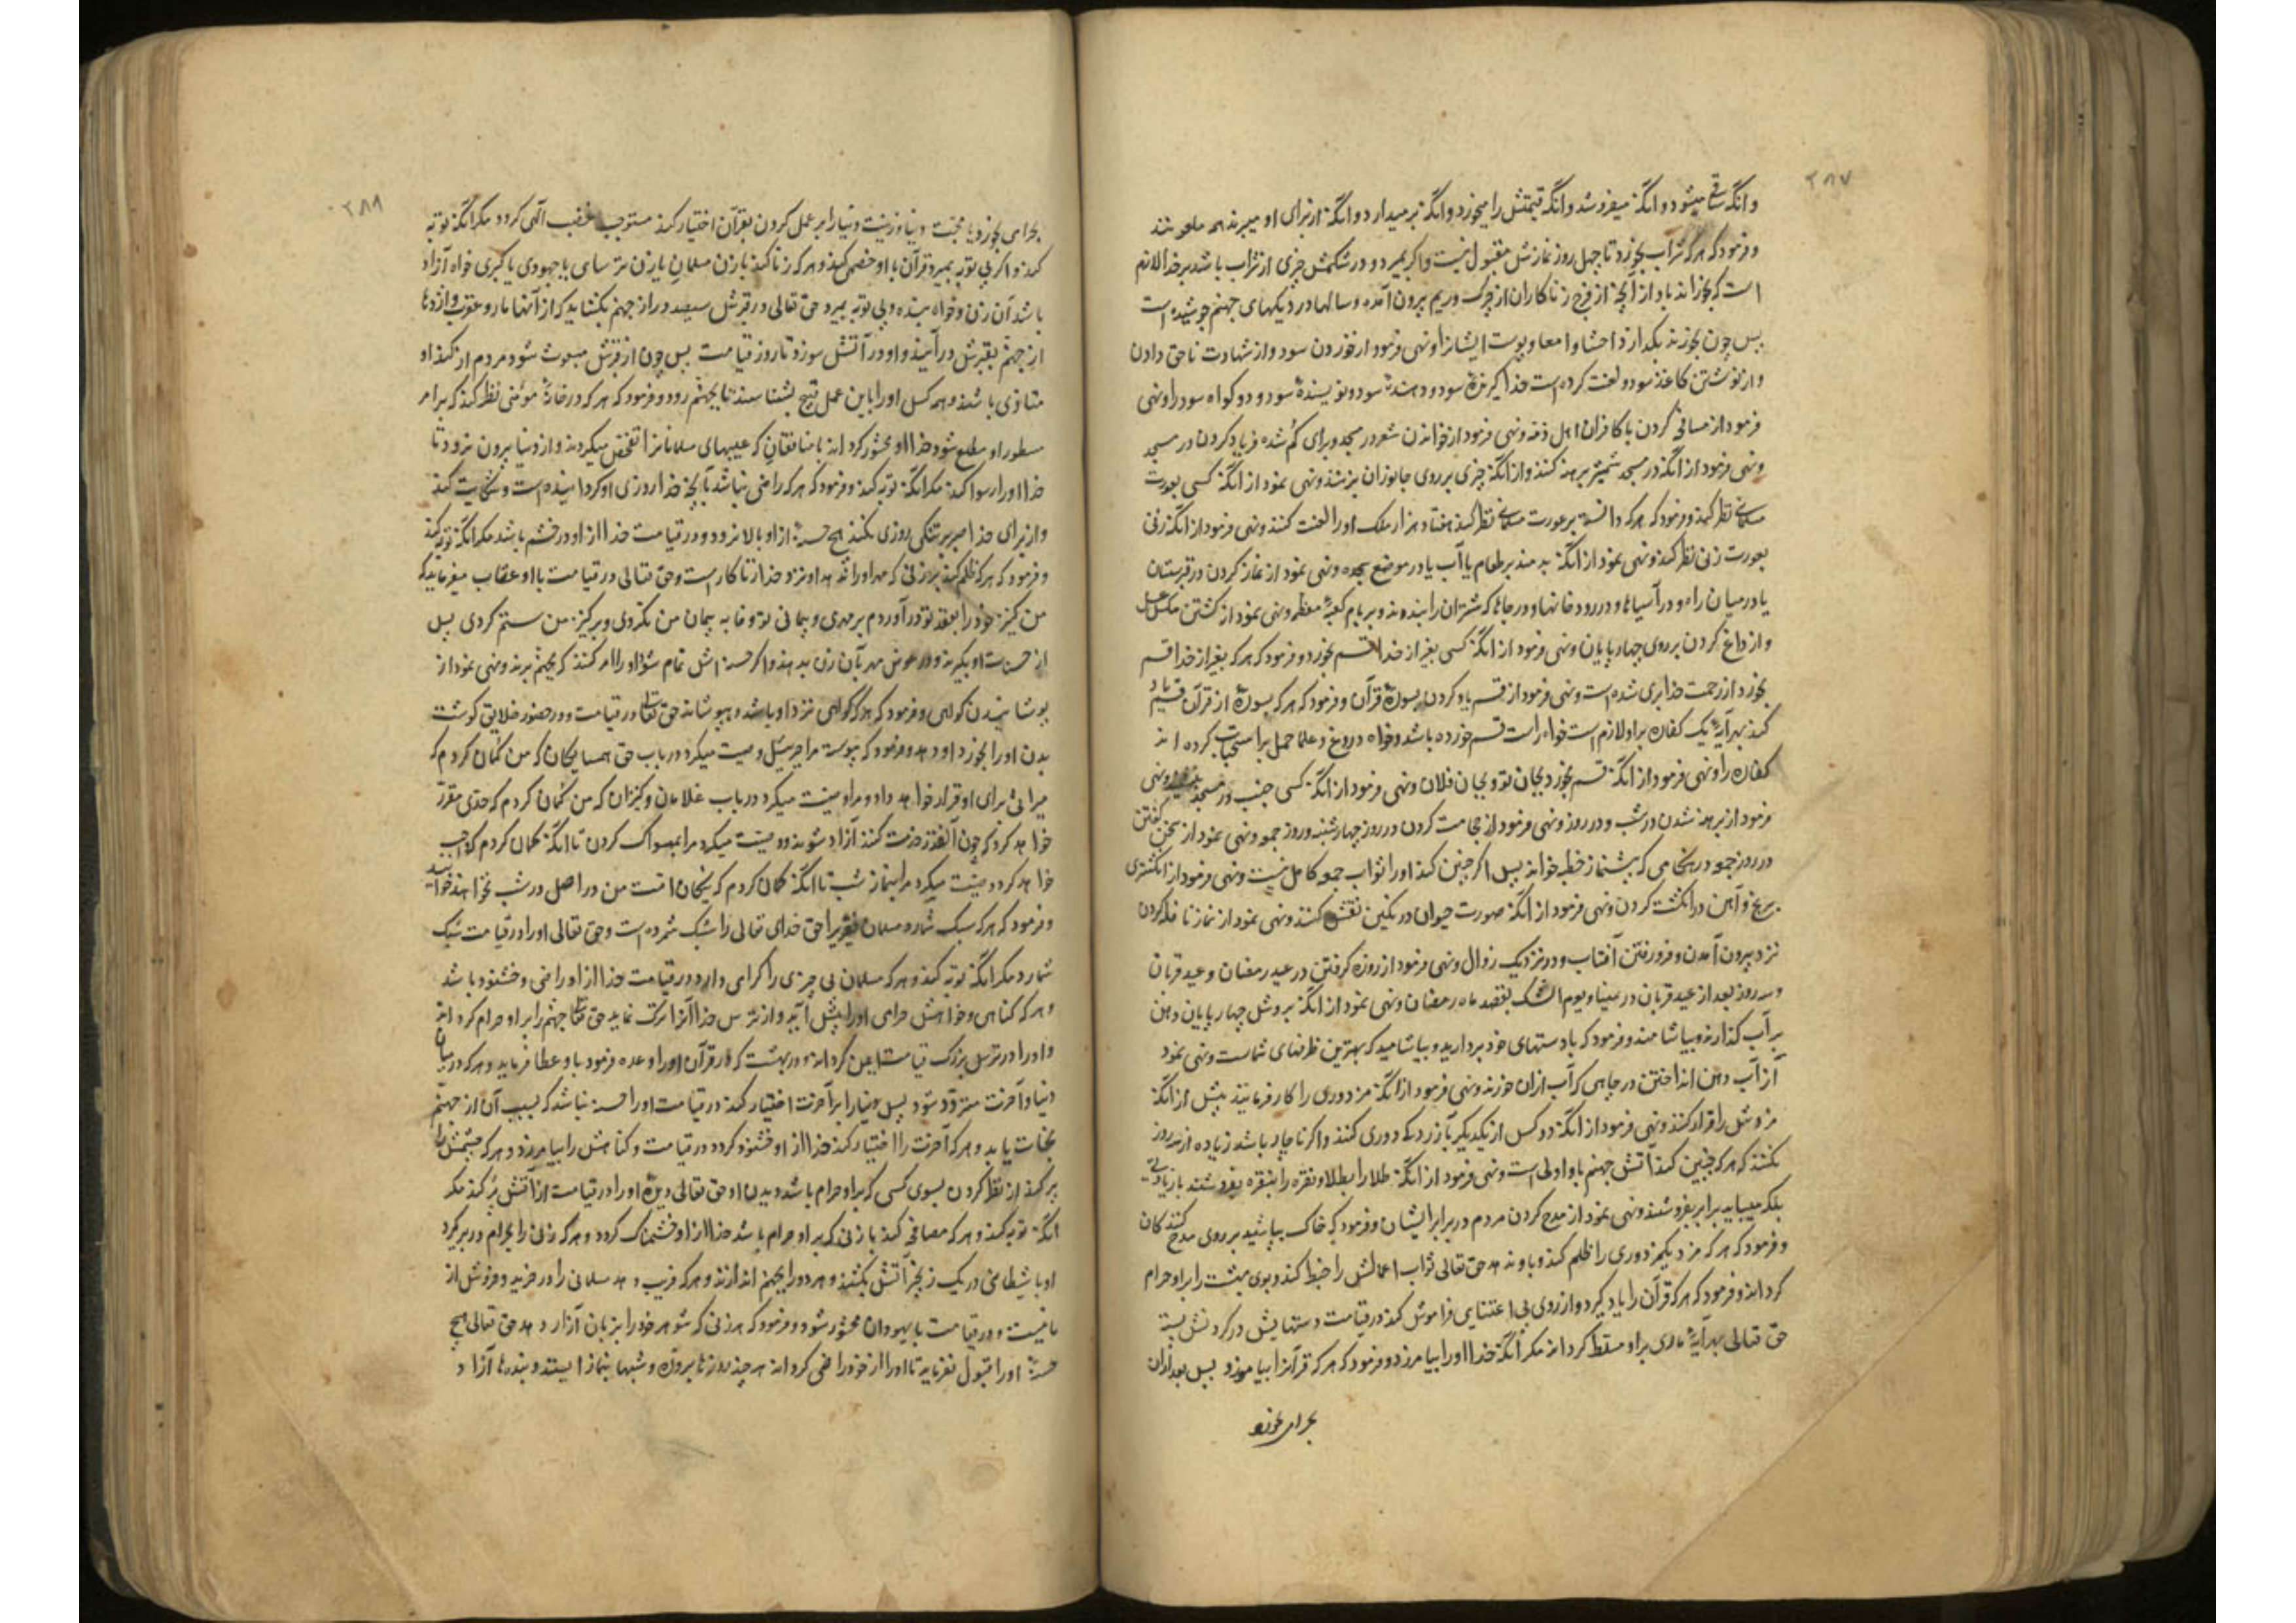 ۲۸۷
وانکه ساقی میشود و انکه میفروشد و انکه قیمتش را میخورد و انکه برمیدارد و انکه از برای او میبرند همه ملعونند
و فرمود که هر که شراب بخورد تا چهل روز نمازش مقبول نیست و اکر بمیرد و در شکمش چیزی از شراب باشد بر خدا لازم
است که بخوراند باو از آنچه از فرج زناکاران از چرک و ریم بیرون آمده و سالها در دیکهای جهنم جوشیده است
پس چون بخورند بکدازد احشا و امعا و پوست ایشانرا و نهی فرمود از خوردن سود و از شهادت ناحق دادن
و از نوشتن کاغذ سود و لعنت کرده است خدا کیرنده سود و دهنده سود و نویسنده سود و دو کواه سود را و نهی
فرمود از مصافحه کردن با کافران اهل ذمه و نهی فرمود از خواندن شعر در مسجد و برای کم شده فریاد کردن در مسجد
و نهی فرمود از انکه در مسجد شمشیر برهنه کنند و از انکه چیزی بر روی جانوران بزنند و نهی نمود از انکه کسی بعورت
مسلمانی نظر کند و فرمود که هر که دانسته بر عورت مسلمانی نظر کند هفتاد هزار ملک او را لعنت کنند و نهی فرمود از انکه زنی
بعورت زنی نظر کند و نهی نمود از انکه بدمند بر طعام یا آب یا در موضع سجده و نهی نمود از نماز کردن در قبرستان
یا در میان راه و در آسیاها و در رودخانها و در جاها که شتران را بندند و بر بام کعبه معظمه و نهی نمود از کشتن مکس عسل
و از داغ کردن بر روی چهارپایان و نهی فرمود از انکه کسی بغیر از خدا قسم بخورد و فرمود که هر که بغیر از خدا قسم
بخورد از رحمت خدا بری شده است و نهی فرمود از قسم یاد کردن بسوره قرآن و فرمود که هر که بسوره از قرآن قسم یاد
کند بهر آیه یک کفاره بر او لازم است خواه راست قسم خورده باشد و خواه دروغ و علما حمل بر استحباب کرده اند
کفاره را و نهی فرمود از انکه قسم بخورد بجان تو و بجان فلان و نهی فرمود از انکه کسی جنب در مسجد بنشیند و نهی
فرمود از برهنه شدن در شب و در روز و نهی فرمود از حجامت کردن در روز چهارشنبه و روز جمعه و نهی نمود از سخن کفتن
در روز جمعه در هنکامی که پیشنماز خطبه خواند پس اکر چنین کند او را ثواب جمعه کامل نیست و نهی فرمود از انکشتری
برنج و آهن در انکشت کردن و نهی فرمود از انکه صورت حیوان در نکین نقش کنند و نهی نمود از نماز نافله کردن
نزد بیرون آمدن و فرورفتن آفتاب و در نزدیک زوال و نهی فرمود از روزه کرفتن در عید رمضان و عید قربان
و سه روز بعد از عید قربان در منا و یوم الشک بقصد ماه رمضان و نهی نمود از انکه بروش چهارپایان دهن
بر آب کذارند و بیاشامند و فرمود که با دستهای خود بردارید و بیاشامید که بهترین ظرفهای شماست و نهی نمود
از آب دهن انداختن در چاهی که آب از ان خورند و نهی فرمود از انکه مزدوری را کار فرمایند پیش از انکه
مزدش را قرار کنند و نهی فرمود از انکه دو کس از یکدیکر بآزردکی دوری کنند و اکر ناچار باشد زیاده از سه روز
نکنند که هر که چنین کند آتش جهنم باو اولی است و نهی فرمود از انکه طلا را بطلا و نقره را بنقره بفروشند بازیادتی
بلکه میباید برابر بفروشند و نهی نمود از مدح کردن مردم در برابر ایشان و فرمود که خاک بپاشید بر روی مدح کنندکان
و فرمود که هر که مزد یک مزدوری را ظلم کند و باو ندهد حق تعالی ثواب اعمالش را حبط کند و بوی بهشت را بر او حرام
کرداند و فرمود که هر که قرآن را یاد کیرد و از روی بی اعتنایی فراموش کند در قیامت دستهایش در کردنش بسته
حق تعالی بهر آیه ماری بر او مسلط کرداند مکر انکه خدا او را بیامرزد و فرمود که هر که قرآنرا بیاموزد پس بعد از ان
حرامی بخورد
۲۸۸
حرامی بخورد یا محبت دنیا و زینت دنیا را بر عمل کردن بقرآن اختیار کند مستوجب غضب آلهی کردد مکر انکه توبه
کند و اکر بی توبه بمیرد قرآن با او خصمی کند و هر که زنا کند با زن مسلمان یا زن ترسای یا جهودی یا کبری خواه آزاد
باشد آن زن و خواه بنده و بی توبه بمیرد حق تعالی در قبرش سیصد در از جهنم بکشاید که از آنها مار و عقرب و اژدها
از جهنم بقبرش درآیند و او در آتش سوزد تا روز قیامت پس چون از قبرش مبعوث شود مردم از کند او
متاذی باشند و همه کس او را باین عمل قبیح بشناسند تا بجهنم رود و فرمود که هر که در خانه مؤمنی نظر کند که بر امر
مستور او مطلع شود خدا او را محشور کرداند با منافقان که عیبهای مسلمانانرا تفحص میکردند و از دنیا بیرون نرود تا
خدا او را رسوا کند مکر انکه توبه کند و فرمود که هر که راضی نباشد بآنچه خدا روزی او کردانیده است و شکایت کند
و از برای خدا صبر بر تنکی روزی نکند هیچ حسنه از او بالا نرود و در قیامت خدا از او در خشم باشد مکر انکه توبه کند
و فرمود که هر که ظلم کند بر زنی که مهر او را ندهد او نزد خدا زناکار است و حق تعالی در قیامت با او عتاب میفرماید که
من کنیز خود را بعقد تو درآوردم بر مهری و پیمانی تو وفا به پیمان من نکردی و بر کنیز من ستم کردی پس
از حسنات او بکیرند و در عوض مهر بآن زن بدهند و اکر حسنه اش تمام شود او را امر کنند که بجهنم برند و نهی نمود از
پوشانیدن کواهی و فرمود که هر که کواهی نزد او باشد و بپوشاند حق تعالی در قیامت در حضور خلایق کوشت
بدن او را بخورد او دهد و فرمود که پیوسته مرا جبرئیل وصیت میکرد در باب حق همسایکان که من کمان کردم که
میراثی برای او قرار خواهد داد و مرا وصیت میکرد در باب غلامان و کنیزان که من کمان کردم که حدی مقرر
خواهد کرد که چون آنقدر خدمت کنند آزاد شوند و وصیت میکرد مرا بمسواک کردن تا انکه کمان کردم که واجب
خواهد کرد و وصیت میکرد مرا بنماز شب تا انکه کمان کردم که نیکان امت من در اصل در شب نخواهند خوابید
و فرمود که هر که سبک شمارد مسلمان فقیر را حق خدای تعالی را سبک شمرده است و حق تعالی او را در قیامت سبک
شمارد مکر انکه توبه کند و هر که مسلمان بی چیزی را کرامی دارد در قیامت خدا از او راضی و خشنود باشد
و هر که کناهی و خواهش حرامی او را پیش آید و از ترس خدا آنرا ترک نماید حق تعالی جهنم را بر او حرام کرداند
و او را در ترس بزرک قیامت ایمن کرداند و در بهشت که در قرآن او را وعده فرموده باو عطا فرماید و هر که در میان
دنیا و آخرت متردد شود پس دنیا را بر آخرت اختیار کند در قیامت او را حسنه نباشد که بسبب آن از جهنم
نجات یابد و هر که آخرت را اختیار کند خدا از او خشنود کردد در قیامت و کناهش را بیامرزد و هر که چشمش را
پر کند از نظر کردن بسوی کسی که بر او حرام باشد دیدن او حق تعالی دیده او را در قیامت از آتش پر کند مکر
انکه توبه کند و هر که مصافحه کند با زنی که بر او حرام باشد خدا از او خشمناک کردد و هر که زنی را بحرام در بر کیرد
او با شیطانی در یک زنجیر آتش بکشند و هر دو را بجهنم اندازند و هر که فریب دهد مسلمانی را در خرید و فروش از
ما نیست و در قیامت با یهودان محشور شود و فرمود که هر زنی که شوهر خود را بزبان آزار دهد حق تعالی هیچ
حسنه او را قبول نفرماید تا او را از خود راضی کرداند هر چند روزها بروزه و شبها بنماز ایستد و بندها آزاد